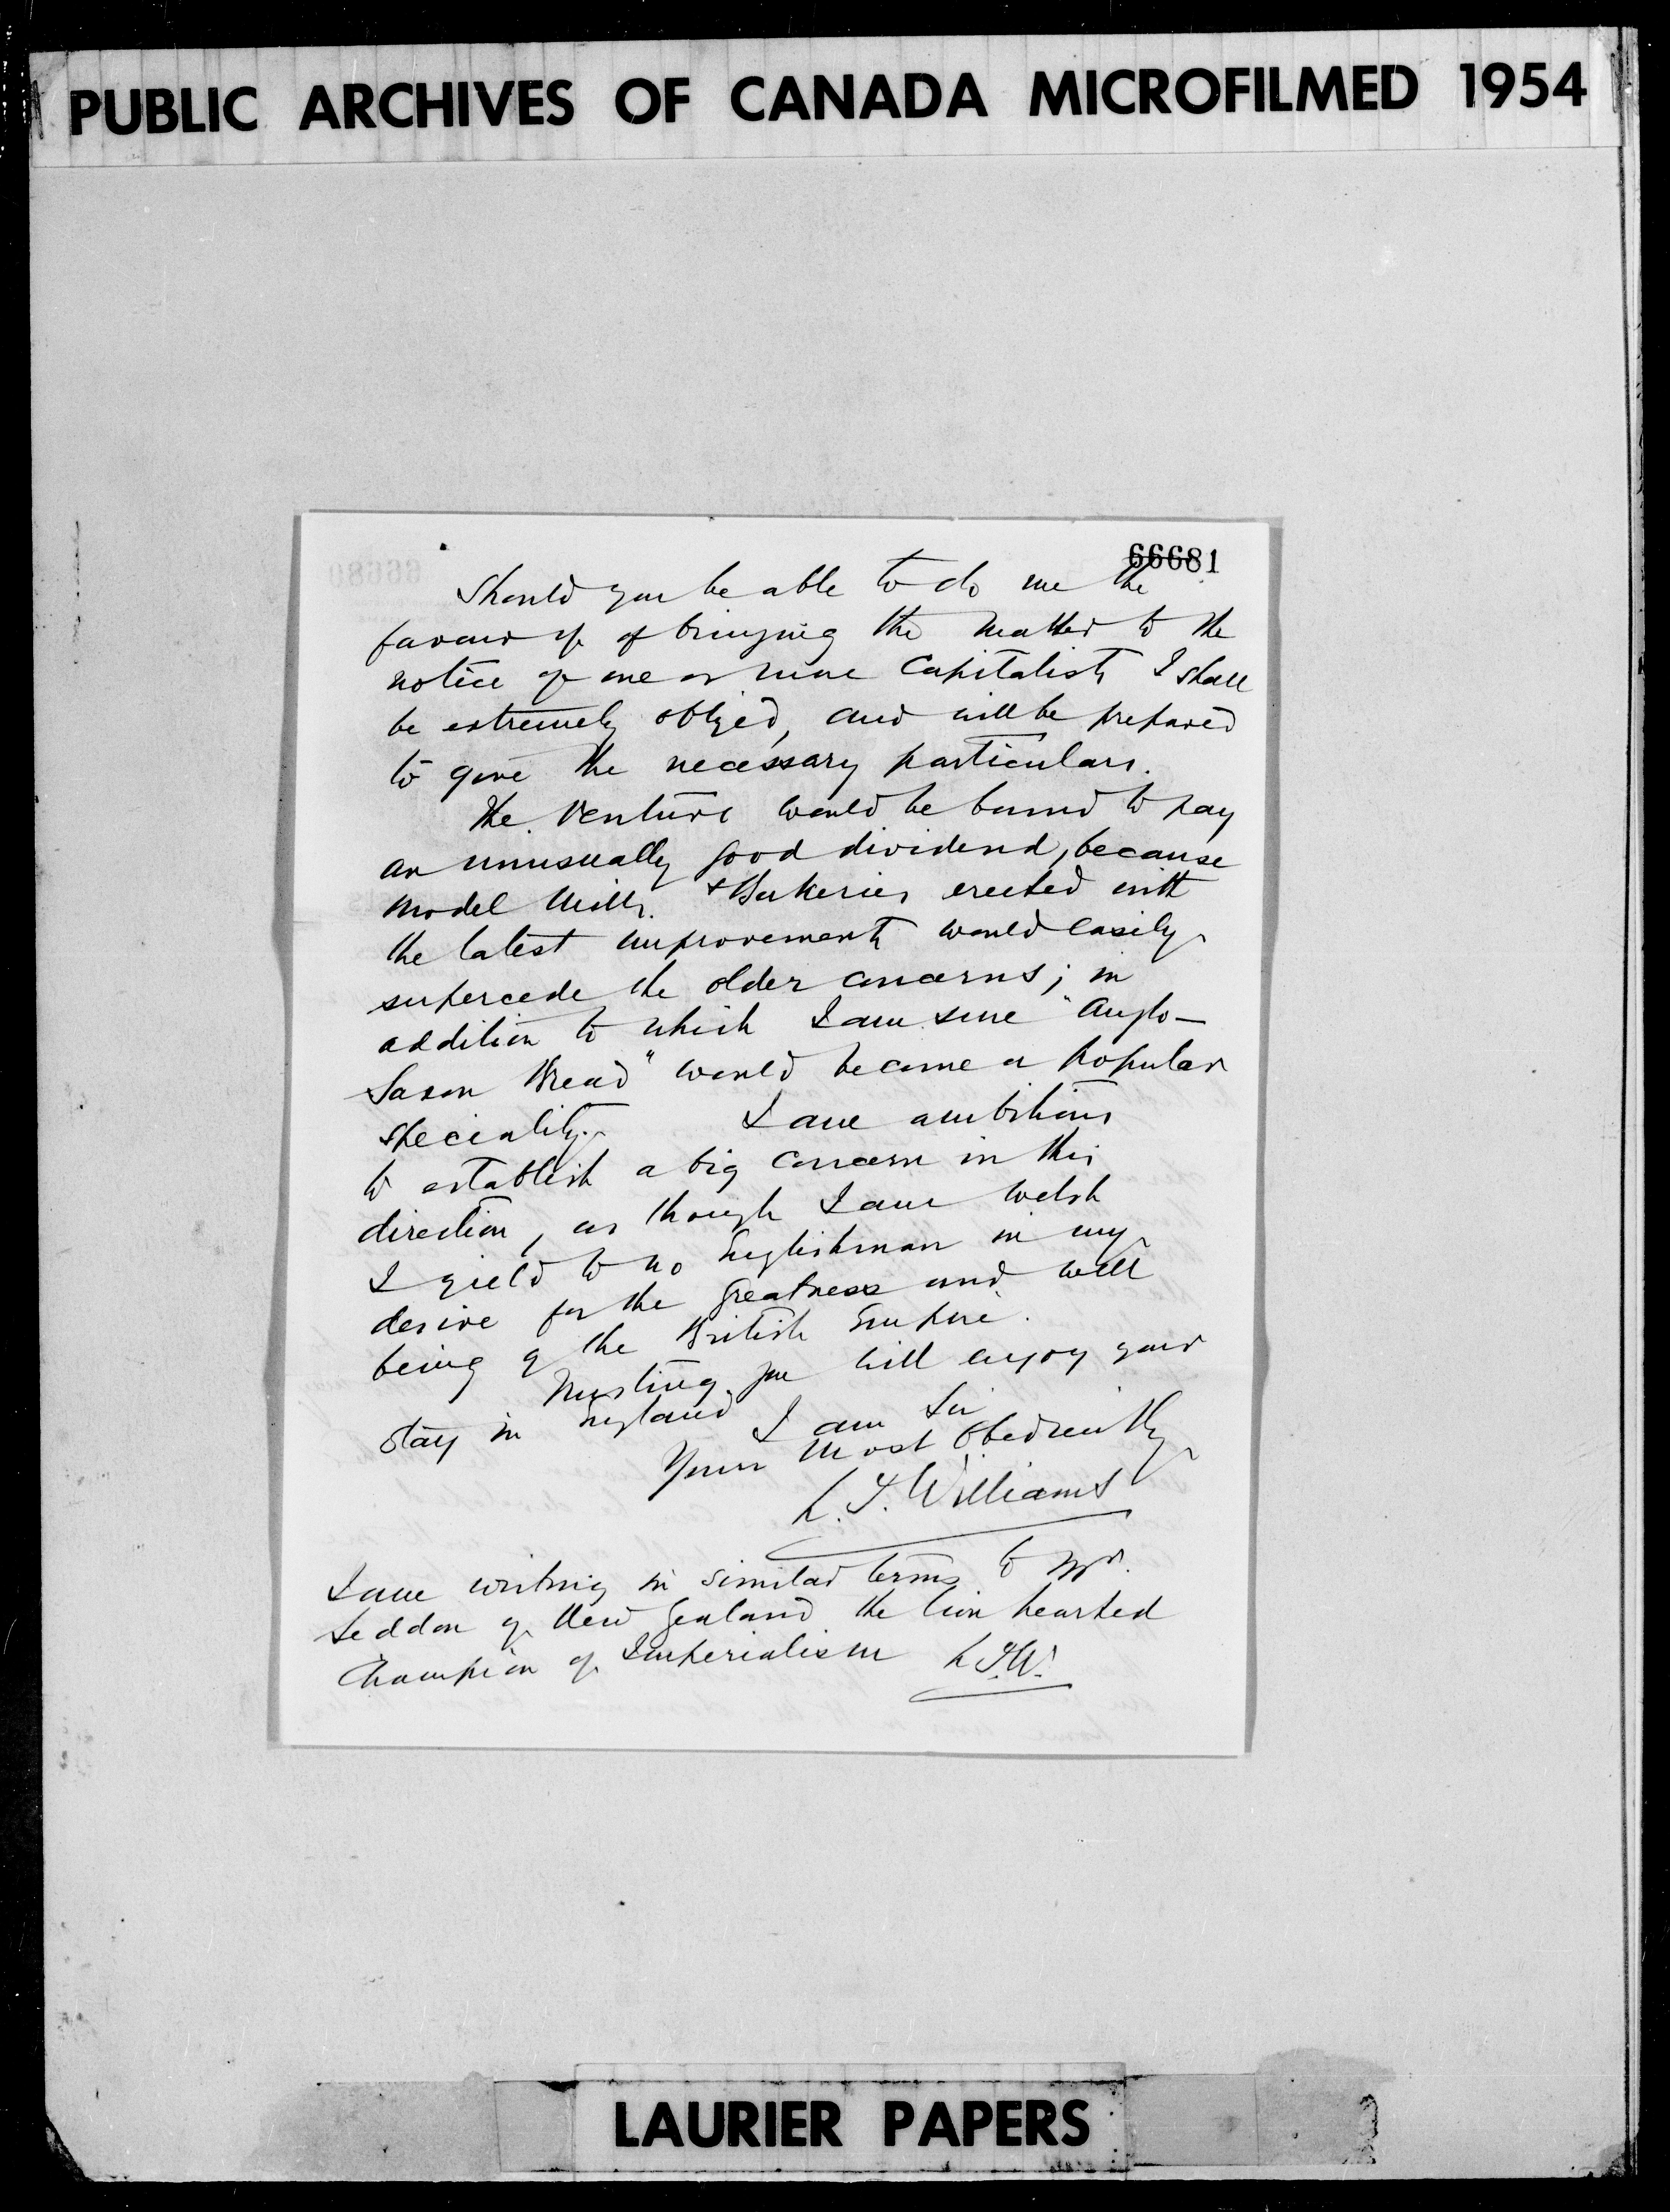 PUBLIC ARCHIVES OF CANADA MICROFILMED 1954
66681
Should you be able to do me the
favour of of bringing the matter to the
notice of one or more Capitalists I shall
be extremely obliged, and will be prepared
to give the necessary particulars.
The Venture would be bound to pay
an unusually good dividend, because
Model Mills. & Bakeries erected with
the latest improvements would easily
supercede the older concerns; in
addition to which I am sure "Anglo-
Saxon Bread" would become a popular
speciality. I am ambitious
to establish a big concern in this
direction, as though I am Welsh
I yield to no Englishman in my
desire for the greatness and well
being of the British Empire.
Trusting you will enjoy your
stay in England I am Sir
Yours most obediently
L. T. Williams
I am writing in similar terms to Mr.
Seddon of New Zealand the lion hearted
Champion of Imperialism L.T.W.
LAURIER PAPERS